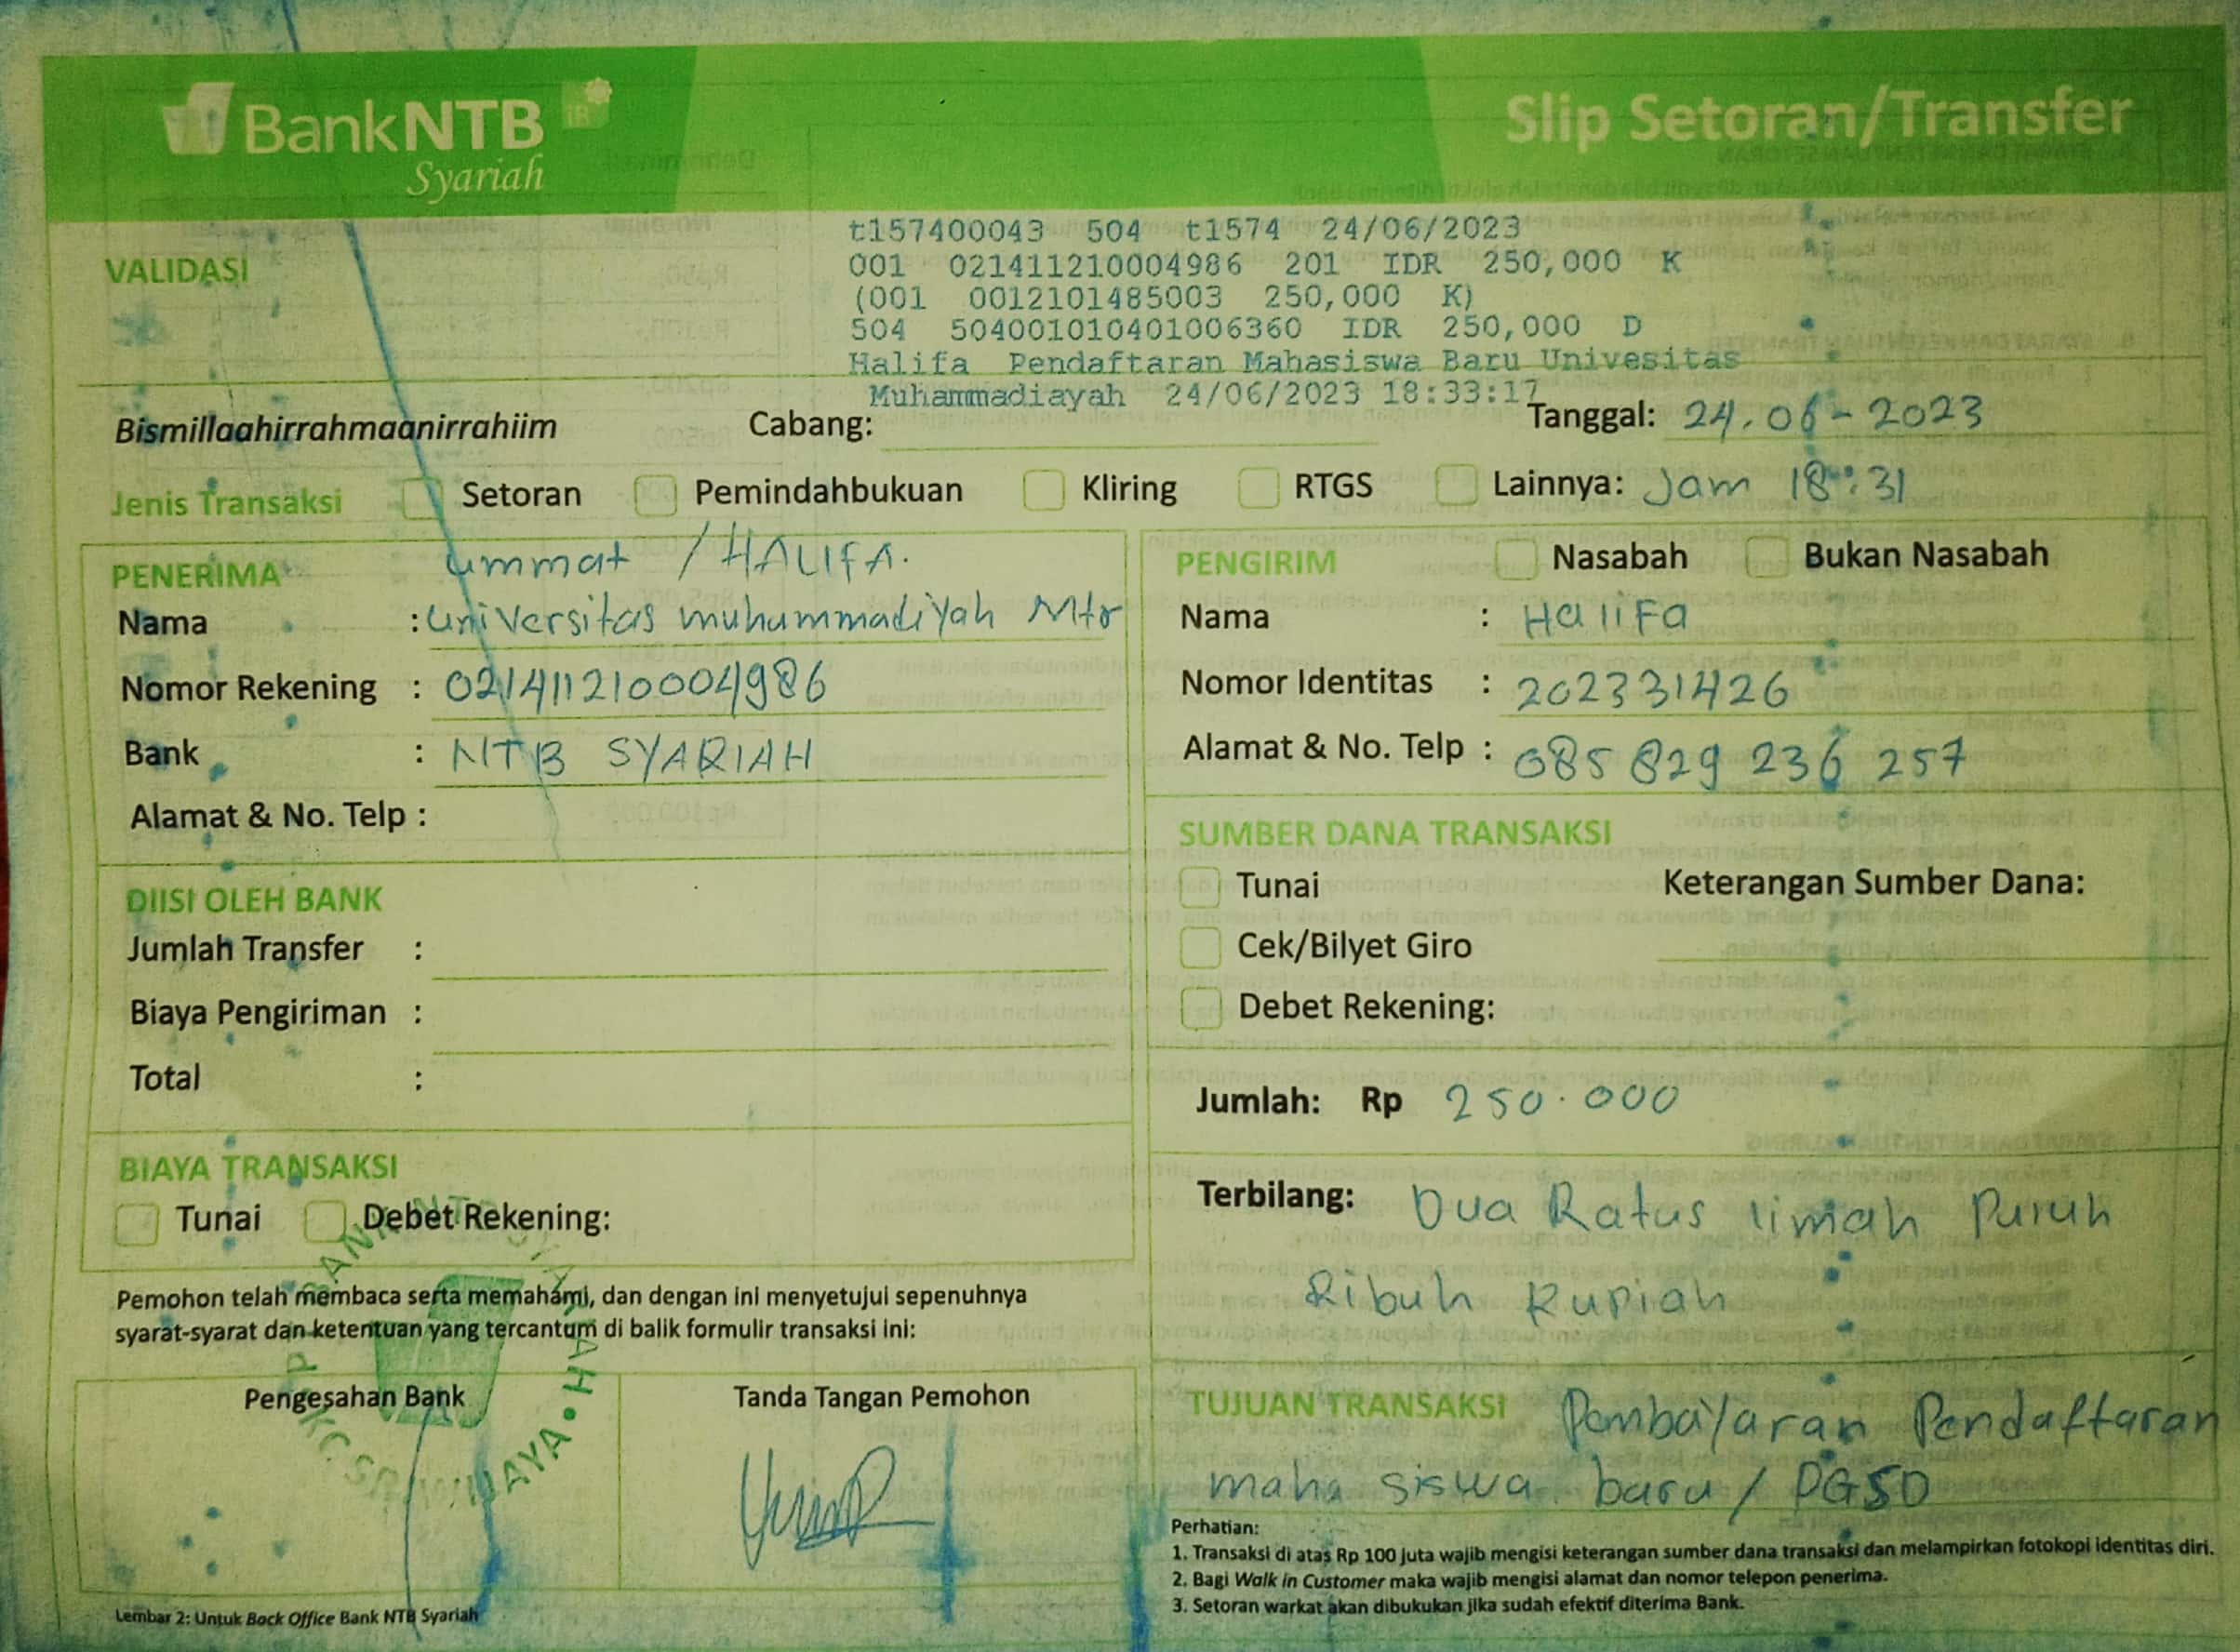 BankNTB
Syariah
Slip Setoran/Transfer
VALIDASI
t157400043 504 t1574 24/06/2023
001 021411210004986 201 IDR 250,000 K
(001 0012101485003 250,000 K)
504 504001010401006360 IDR 250,000 D
Halifa Pendaftaran Mahasiswa Baru Univesitas
Muhammadiayah 24/06/2023 18:33:17
Bismillaahirrahmaanirrahiim Cabang: Tanggal: 24.06-2023
Jenis Transaksi Setoran Pemindahbukuan Kliring RTGS Lainnya: Jam 18:31
PENERIMA ummat / HALIFA.
Nama : universitas muhammadiyah Mtr
Nomor Rekening : 021411210004986
Bank : NTB SYARIAH
Alamat & No. Telp :
PENGIRIM Nasabah Bukan Nasabah
Nama : HaliFa
Nomor Identitas : 202331426
Alamat & No. Telp : 085 829 236 257
DIISI OLEH BANK
Jumlah Transfer :
Biaya Pengiriman :
Total :
SUMBER DANA TRANSAKSI
Tunai Keterangan Sumber Dana:
Cek/Bilyet Giro
Debet Rekening:
Jumlah: Rp 250.000
BIAYA TRANSAKSI
Tunai Debet Rekening:
Terbilang: Dua Ratus limah Puluh
Ribuh Rupiah
Pemohon telah membaca serta memahami, dan dengan ini menyetujui sepenuhnya
syarat-syarat dan ketentuan yang tercantum di balik formulir transaksi ini:
Pengesahan Bank Tanda Tangan Pemohon
TUJUAN TRANSAKSI Pembayaran Pendaftaran
maha siswa baru / PGSD
Perhatian:
1. Transaksi di atas Rp 100 juta wajib mengisi keterangan sumber dana transaksi dan melampirkan fotokopi identitas diri.
2. Bagi Walk in Customer maka wajib mengisi alamat dan nomor telepon penerima.
3. Setoran warkat akan dibukukan jika sudah efektif diterima Bank.
Lembar 2: Untuk Back Office Bank NTB Syariah